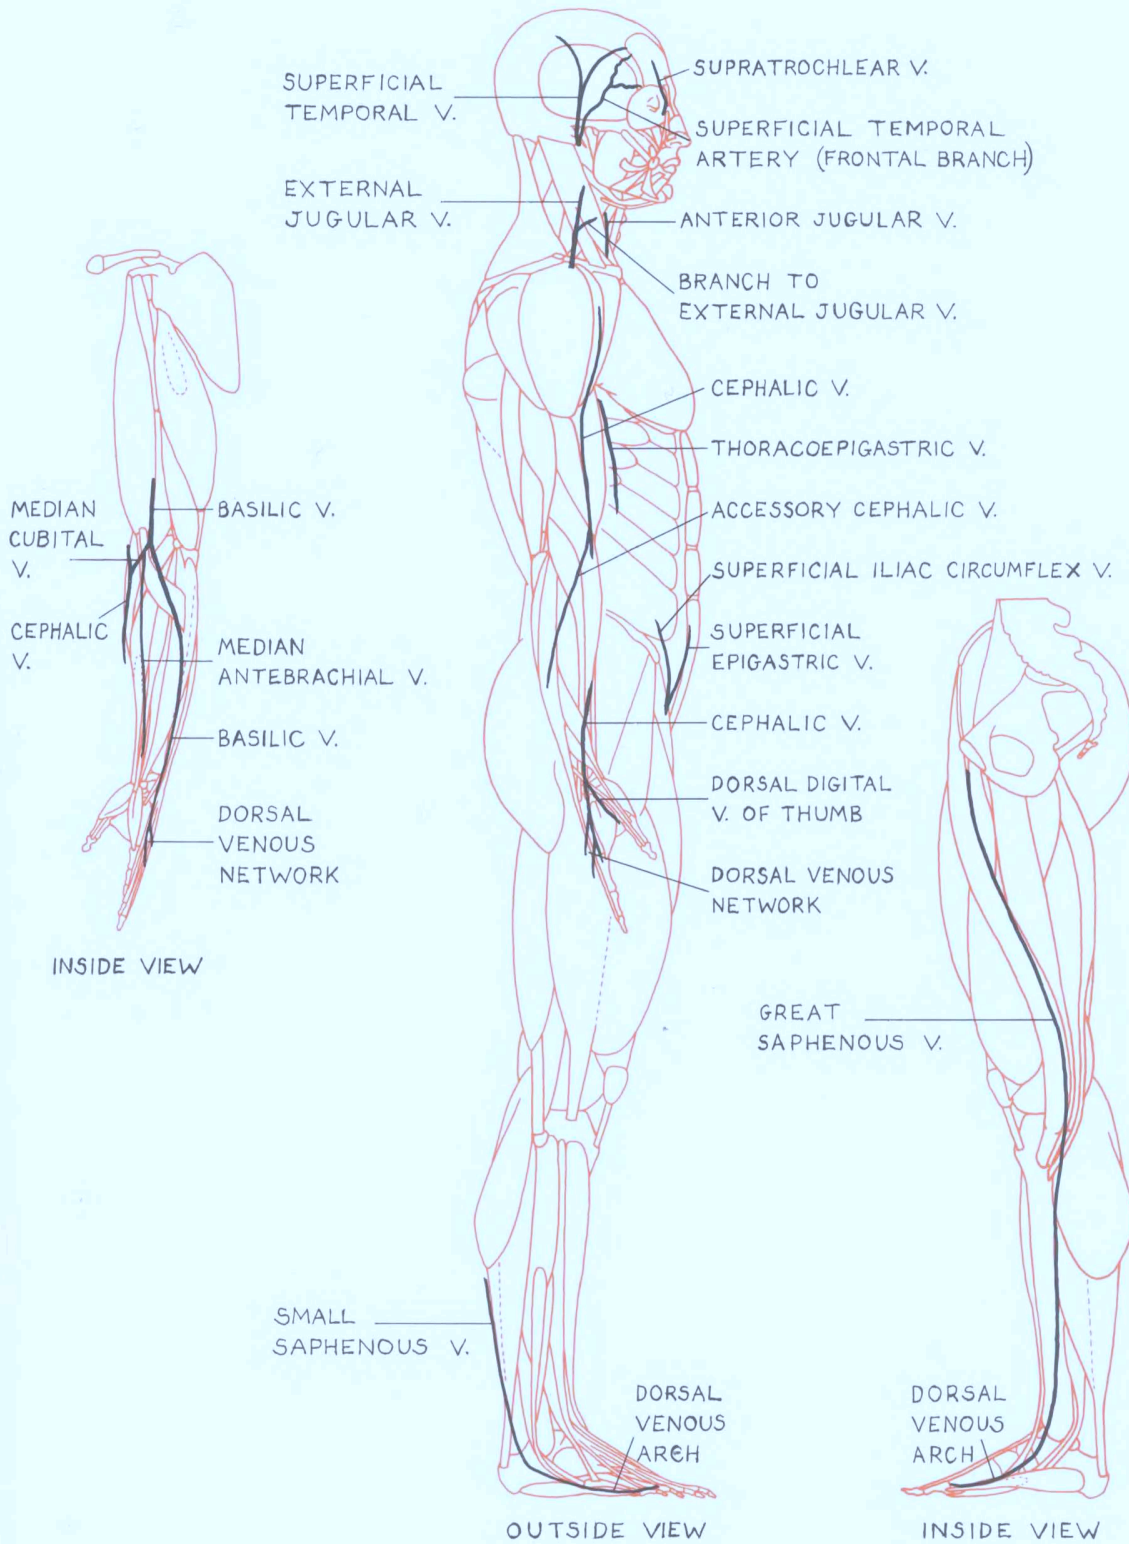 SUPERFICIAL
TEMPORAL V.
SUPRATROCHLEAR V.
SUPERFICIAL TEMPORAL
ARTERY (FRONTAL BRANCH)
EXTERNAL
JUGULAR V.
ANTERIOR JUGULAR V.
BRANCH TO
EXTERNAL JUGULAR V.
CEPHALIC V.
THORACOEPIGASTRIC V.
ACCESSORY CEPHALIC V.
SUPERFICIAL ILIAC CIRCUMFLEX V.
SUPERFICIAL
EPIGASTRIC V.
CEPHALIC V.
DORSAL DIGITAL
V. OF THUMB
DORSAL VENOUS
NETWORK
MEDIAN
CUBITAL
V.
BASILIC V.
CEPHALIC
V.
MEDIAN
ANTEBRACHIAL V.
BASILIC V.
DORSAL
VENOUS
NETWORK
INSIDE VIEW
GREAT
SAPHENOUS V.
SMALL
SAPHENOUS V.
DORSAL
VENOUS
ARCH
OUTSIDE VIEW
DORSAL
VENOUS
ARCH
INSIDE VIEW